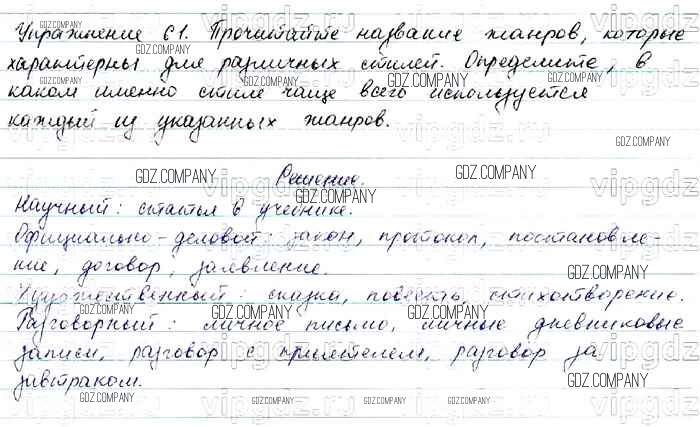 Упражнение 61. Прочитайте название жанров, которые
характерны для различных стилей. Определите, в
каком именно стиле чаще всего используется
каждый из указанных жанров.
Решение.
Научный: статья в учебнике.
Официально-деловой: закон, протокол, постановле-
ние, договор, заявление.
Художественный: сказка, повесть, стихотворение.
Разговорный: личное письмо, личные дневниковые
записи, разговор с приятелем, разговор за
завтраком.